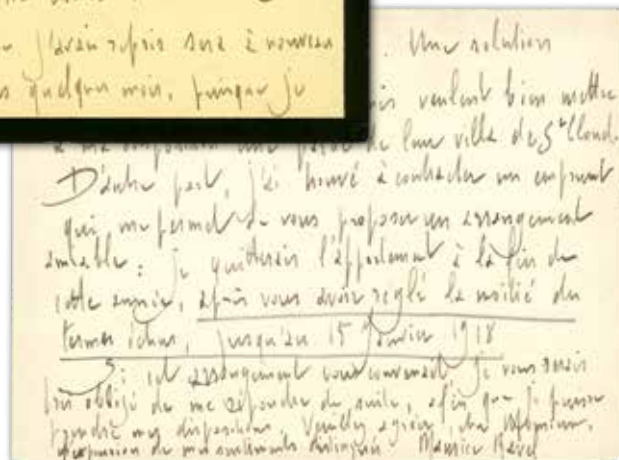 j'avais repris sera à nouveau
quelques mois, puisque je
Une solution
veulent bien mettre
à ma disposition une partie de leur villa de St Cloud.
D'autre part, j'ai trouvé à contracter un emprunt
qui me permet de vous proposer un arrangement
amiable : je quitterais l'appartement à la fin de
cette année, après vous avoir réglé la moitié des
termes échus, jusqu'au 15 janvier 1918
Si cet arrangement vous convenait, je vous serais
très obligé de me répondre de suite, afin que je puisse
prendre mes dispositions. Veuillez agréer, cher Monsieur,
l'expression de mes sentiments distingués Maurice Ravel